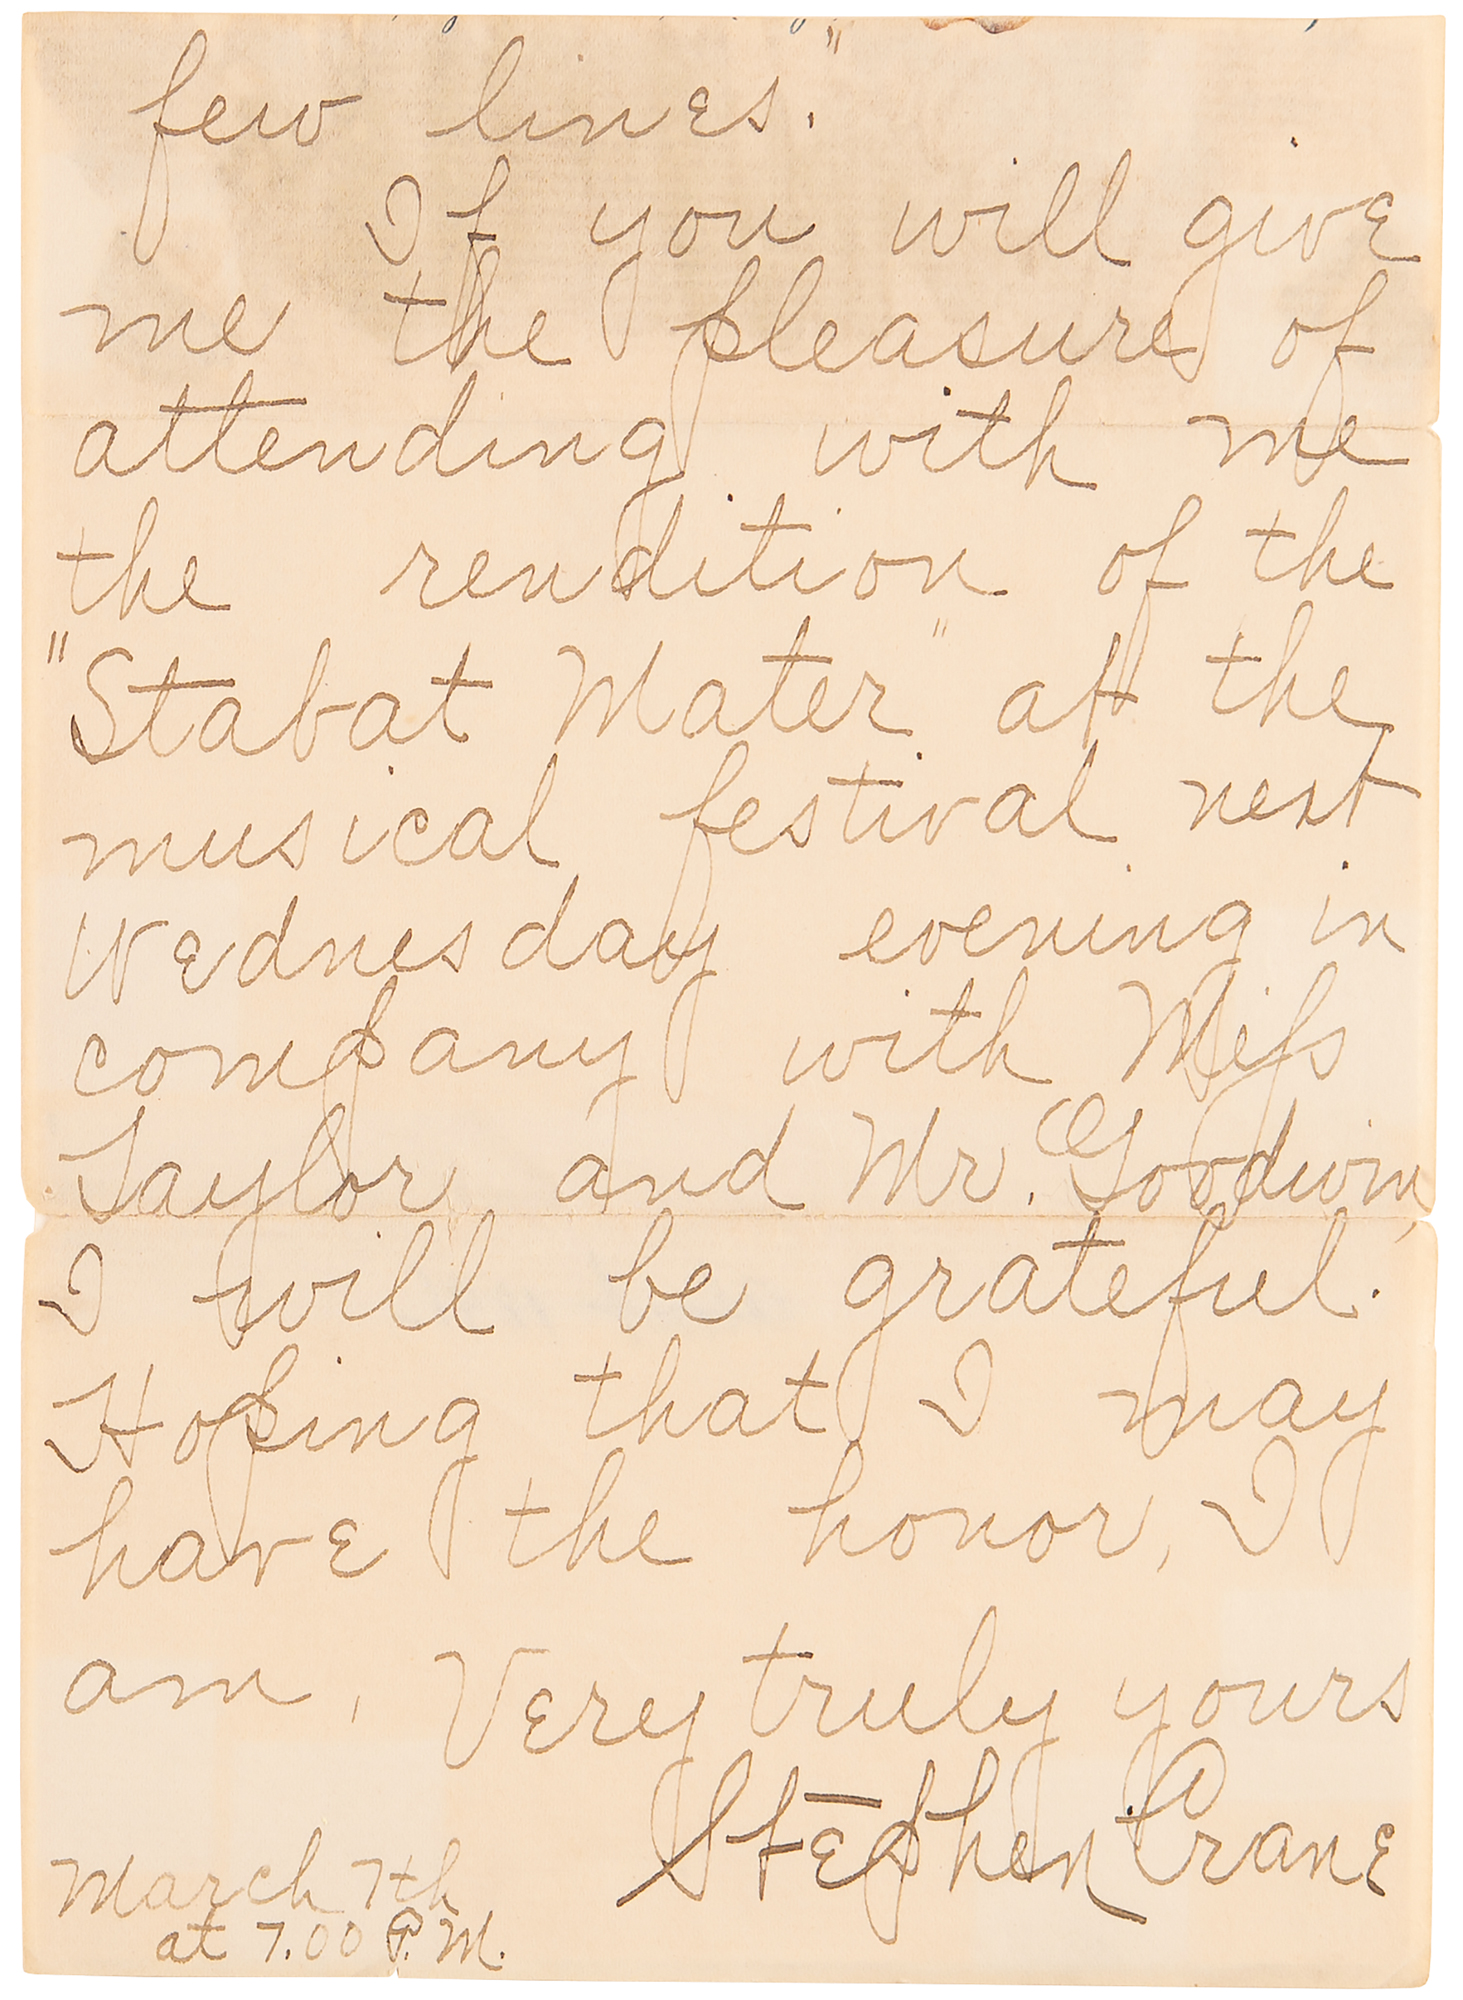 few lines."
If you will give
me the pleasure of
attending with me
the rendition of the
"Stabat Mater" at the
musical festival next
Wednesday evening in
company with Miss
Taylor and Mr. Goodwin,
I will be grateful.
Hoping that I may
have the honor, I
am, Very truly yours
Stephen Crane
March 7th
at 7.00 P.M.